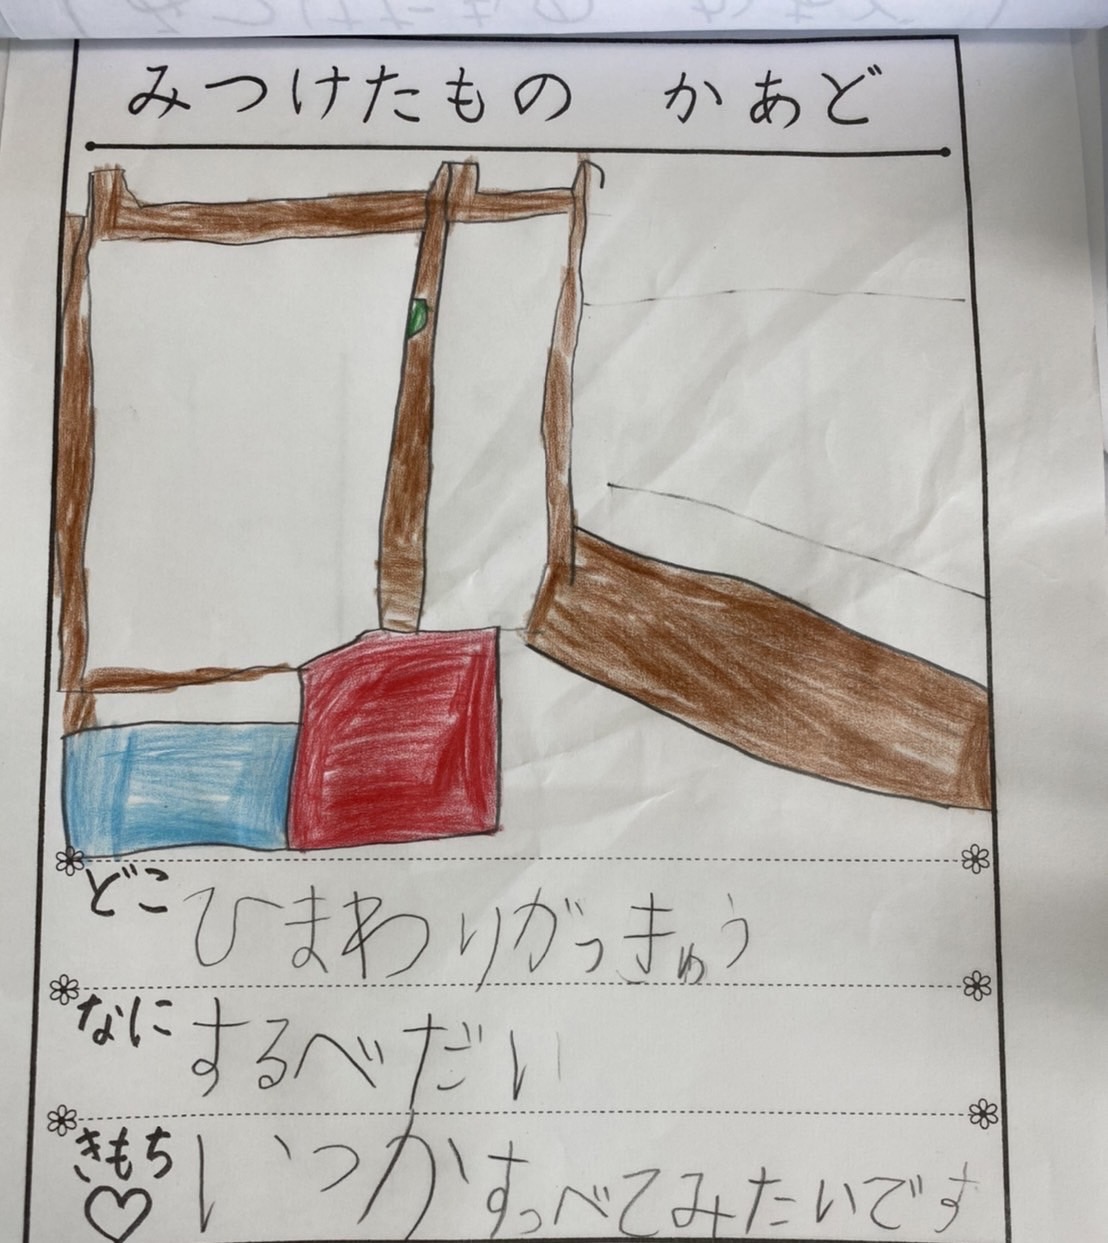 みつけたもの　かあど
どこ ひまわりがっきゅう
なに するべだい
きもち いつかすっべてみたいです